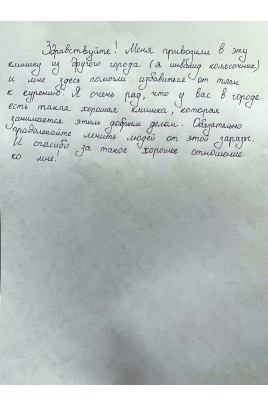 Здравствуйте! Меня привозили в эту
клинику из другого города (я инвалид колясочник)
и мне здесь помогли избавиться от тяги
к курению. Я очень рад, что у вас в городе
есть такая хорошая клиника, которая
занимается этим добрым делом. Обязательно
продолжайте лечить людей от этой заразы.
И спасибо за такое хорошее отношение
ко мне!